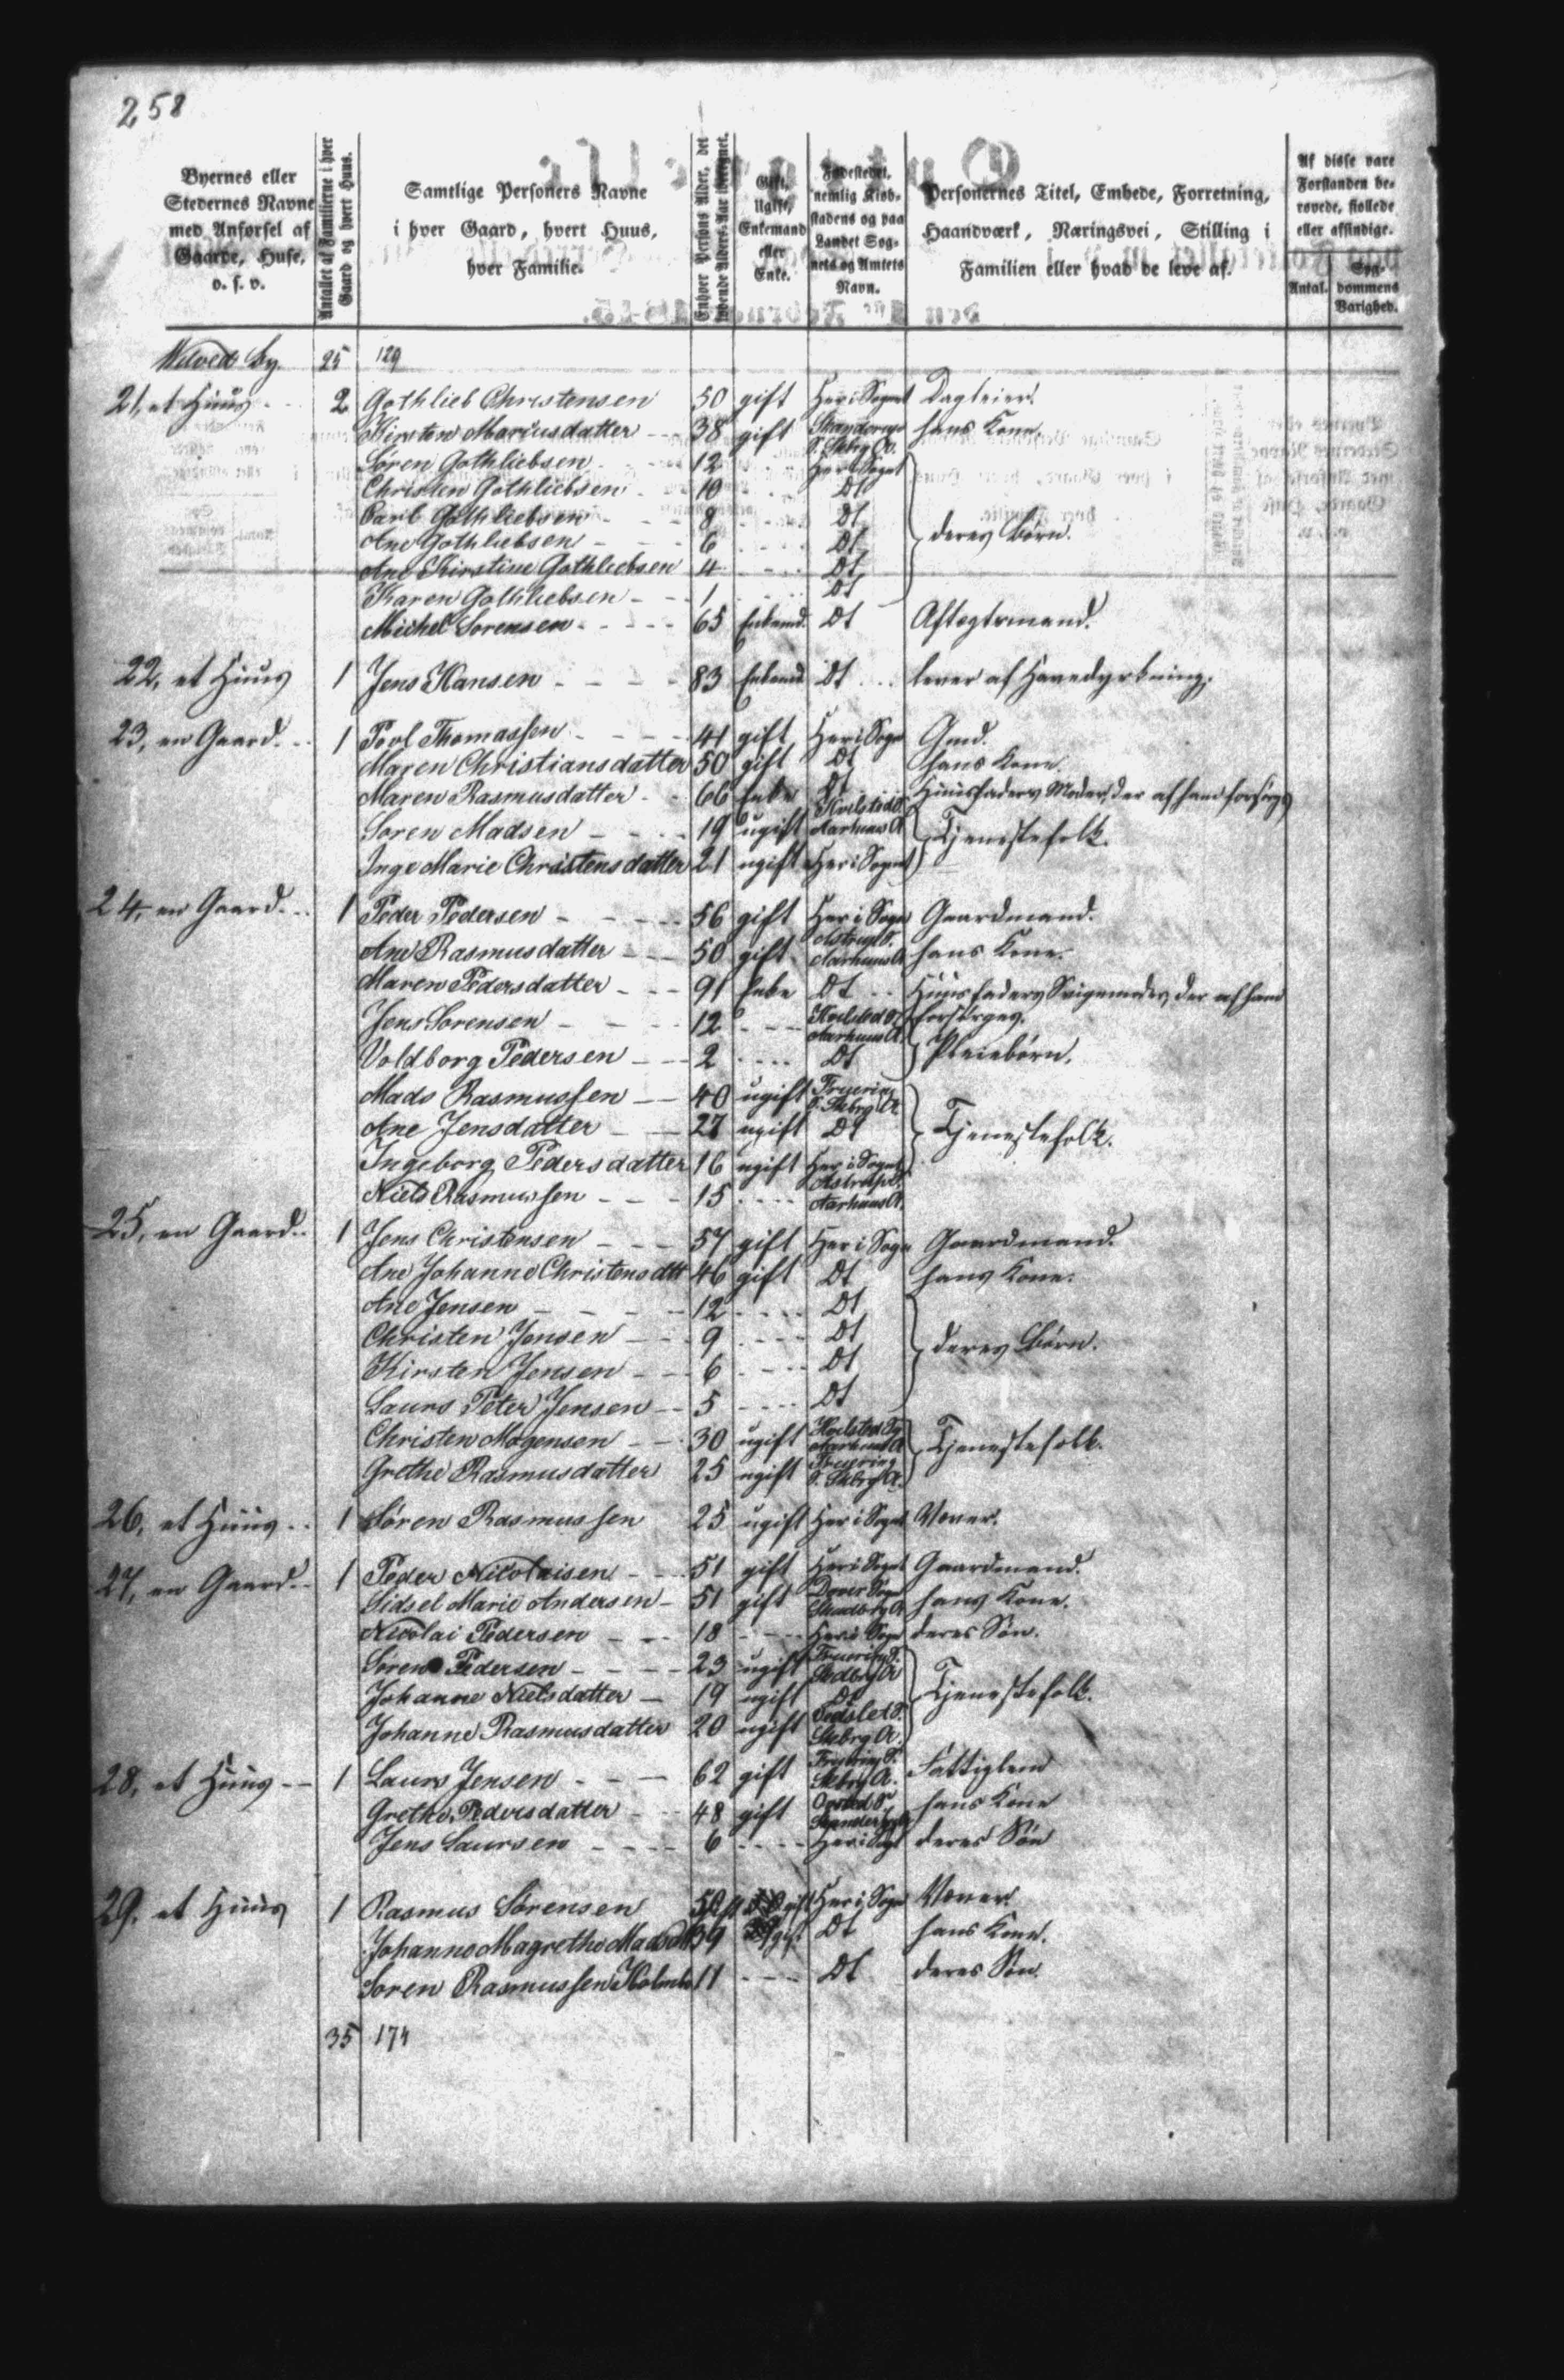 258
Byernes eller Stedernes Navne med Anførsel af Gaarde, Huse, o. s. v.
Antallet af Familierne i hver Gaard og hvert Huus.
Samtlige Personers Navne i hver Gaard, hvert Huus, hver Familie.
Enhver Persons Alder, det løbende Alders-Aar iberegnet.
Gift, Ugift, Enkemand eller Enke.
Fødestedet, nemlig Kiøbstadens og paa Landet Sognets og Amtets Navn.
Personernes Titel, Embede, Forretning, Haandværk, Næringsvei, Stilling i Familien eller hvad de leve af.
Af disse vare Forstanden berøvede, fiollede eller afsindige.
Antal. Sygdommens Varighed.
By. 25 129
21, et Huus 2 Gothlieb Christensen 50 gift Her i Sognet Dagleier.
Kirsten Mariusdatter 38 gift S. Skbrg A. hans Kone.
Søren Gothliebsen 12 Her i Sognet
Christen Gothliebsen 10 Dt
Carl Gothliebsen 8 Dt deres Børn.
Ane Gothliebsen 6 Dt
Ane Kirstine Gothliebsen 4 Dt
Karen Gothliebsen 1 Dt
Michel Sørensen 65 Enkemd. Dt Aftægtsmand.
22, et Huus 1 Jens Hansen 83 Enkemd Dt lever af Havedyrkning.
23, en Gaard 1 Povl Thomassen 41 gift Her i Sogn Gmd.
Maren Christiansdatter 50 gift Dt hans Kone.
Maren Rasmusdatter 66 Enke Dt Huusfaders Moder, der af ham forsørges
Søren Madsen 19 ugift Aarhuus A Tjenestefolk.
Inge Marie Christensdatter 21 ugift Her i Sognet
24, en Gaard 1 Peder Pedersen 56 gift Her i Sogn Gaardmand.
Ane Rasmusdatter 50 gift Astrup S. Aarhuus A hans Kone.
Maren Pedersdatter 91 Enke Dt Huusfaders Svigermoder, der af ham
Jens Sørensen 12 Aarhuus A. forsørges.
Voldborg Pedersen 2 Dt Pleiebørn.
Mads Rasmussen 40 ugift Fruering S. Skbrg A.
Ane Jensdatter 27 ugift Dt Tjenestefolk.
Ingeborg Pedersdatter 16 ugift Her i Sognet
Niels Rasmussen 15 Astrup S. Aarhuus A.
25, en Gaard 1 Jens Christensen 57 gift Her i Sogn Gaardmand.
Ane Johanne Christensdtt 46 gift Dt hans Kone.
Ane Jensen 12 Dt
Christen Jensen 9 Dt deres Børn.
Kirsten Jensen 6 Dt
Laurs Peter Jensen 5 Dt
Christen Mogensen 30 ugift Aarhuus A Tjenestefolk.
Grethe Rasmusdatter 25 ugift Fruering S. Skbrg A.
26, et Huus 1 Søren Rasmussen 25 ugift Her i Sognet Væver.
27, en Gaard 1 Peder Nicolaisen 51 gift Her i Sognet Gaardmand.
Sidsel Marie Andersen 51 gift Dover Sogn hans Kone.
Nicolai Pedersen 18 Her i Sogn deres Søn.
Søren Pedersen 23 ugift Fruering S.
Johanne Nielsdatter 19 ugift Dt Tjenestefolk.
Johanne Rasmusdatter 20 ugift Tedslet S. Skbrg A.
28, et Huus 1 Laurs Jensen 62 gift Fruering S. Skbrg A. Fattiglem
Grethe Pedersdatter 48 gift hans Kone
Jens Laursen 6 Her i Sogn deres Søn
29, et Huus 1 Rasmus Sørensen gift Her i Sogn Væver.
Johanne Magrethe Madsdtt 39 gift Dt hans Kone.
Søren Rasmussen 11 Dt deres Søn.
35 174